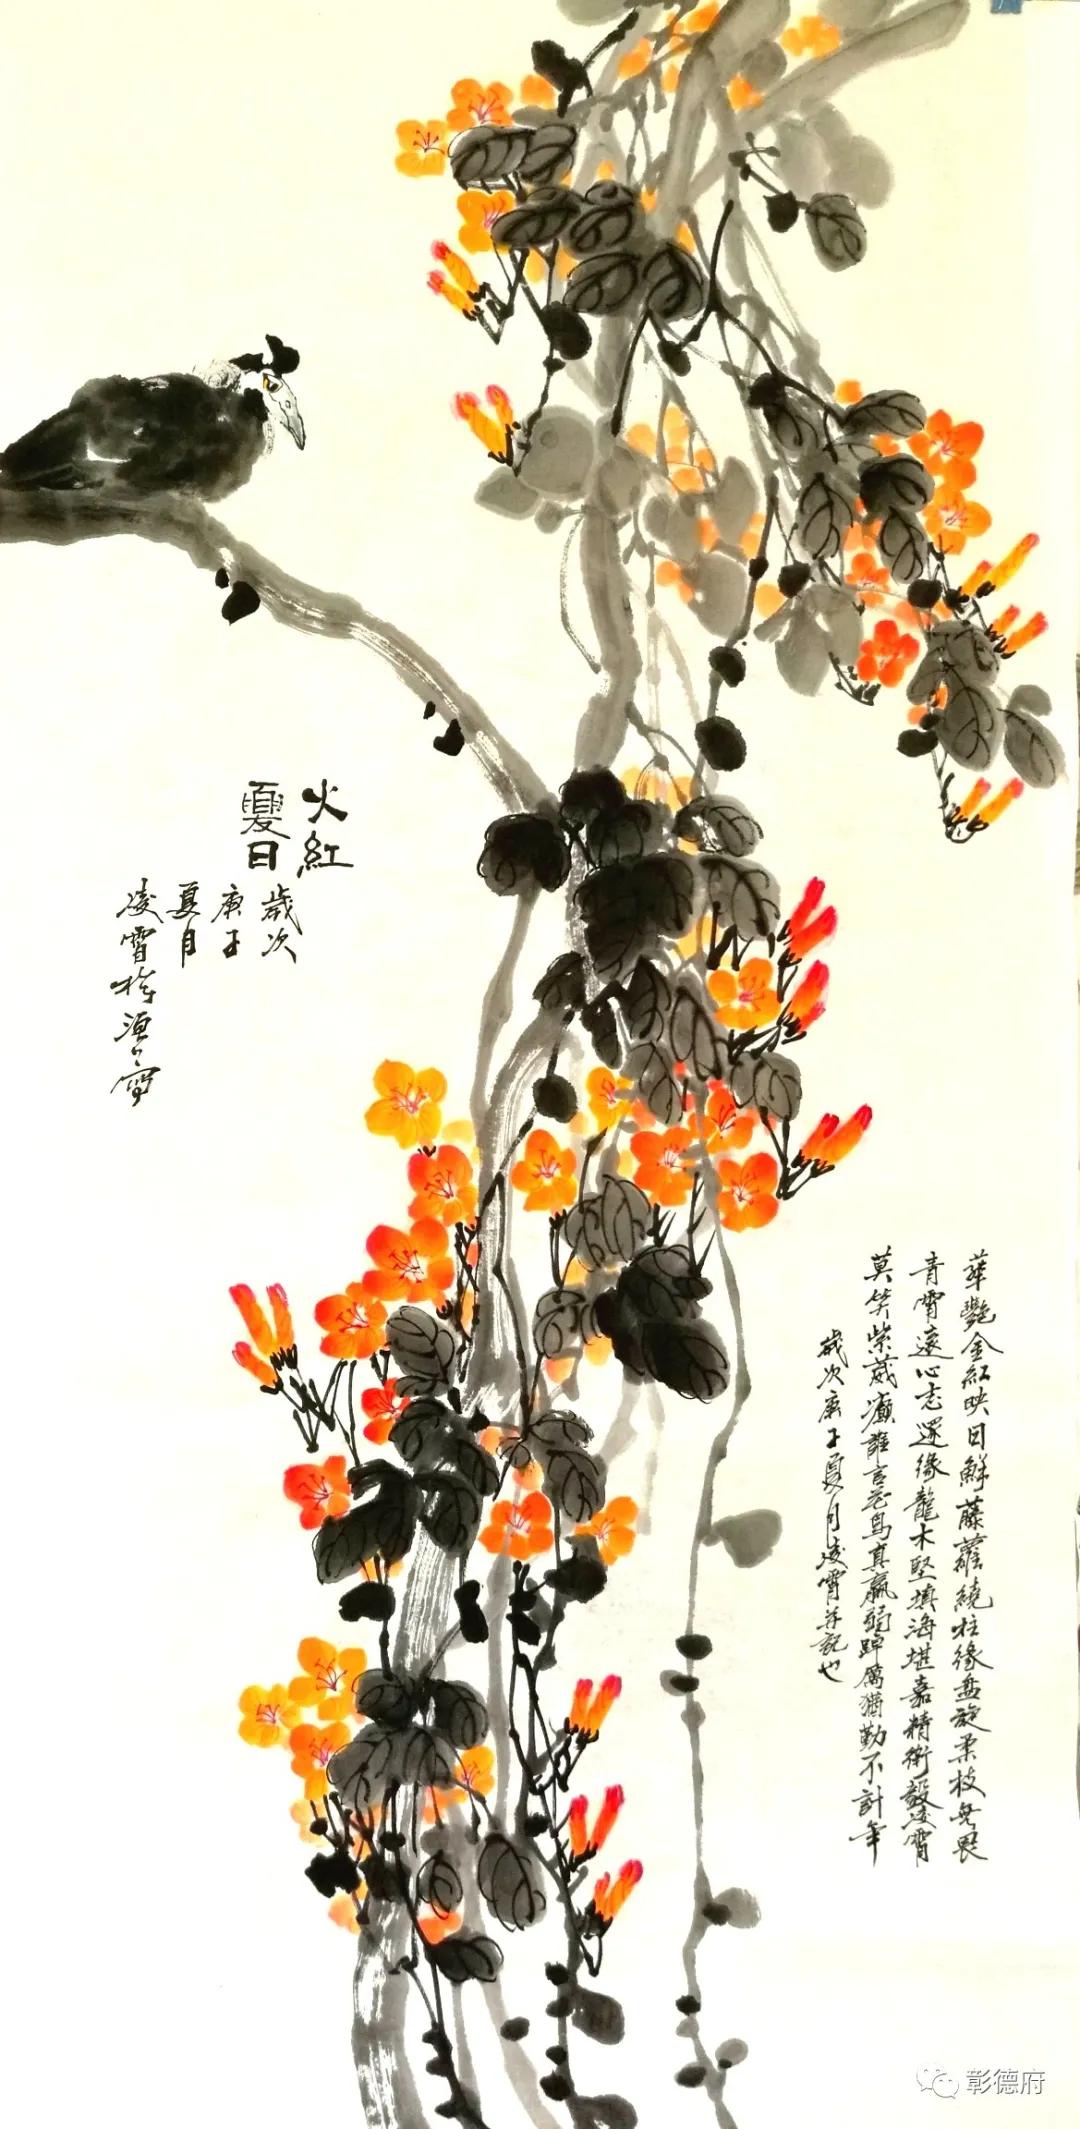 火紅
夏日
歲次
庚子
夏月
凌霄
華艷金紅映日鮮藤蘿繞柱緣盤旋柔枝無畏
青霄遠心志還緣龍木堅填海堪嘉精衛毅凌霄
莫笑紫葳癲誰言花鳥真羸弱踔厲猶勤不計年
歲次庚子夏月凌霄并記也
彰德府